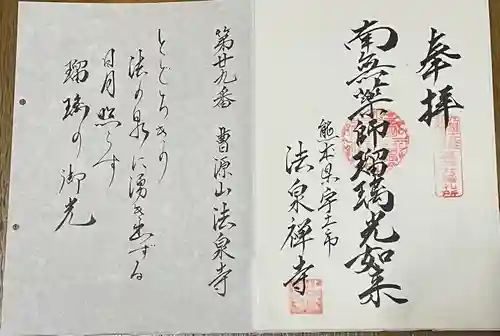 奉拝
南無薬師瑠璃光如来
熊本県宇土市
法泉祥寺
第廿九番 曹源山法泉寺
とどろきの
法の泉に湧き出ずる
日月照らす
瑠璃の御光